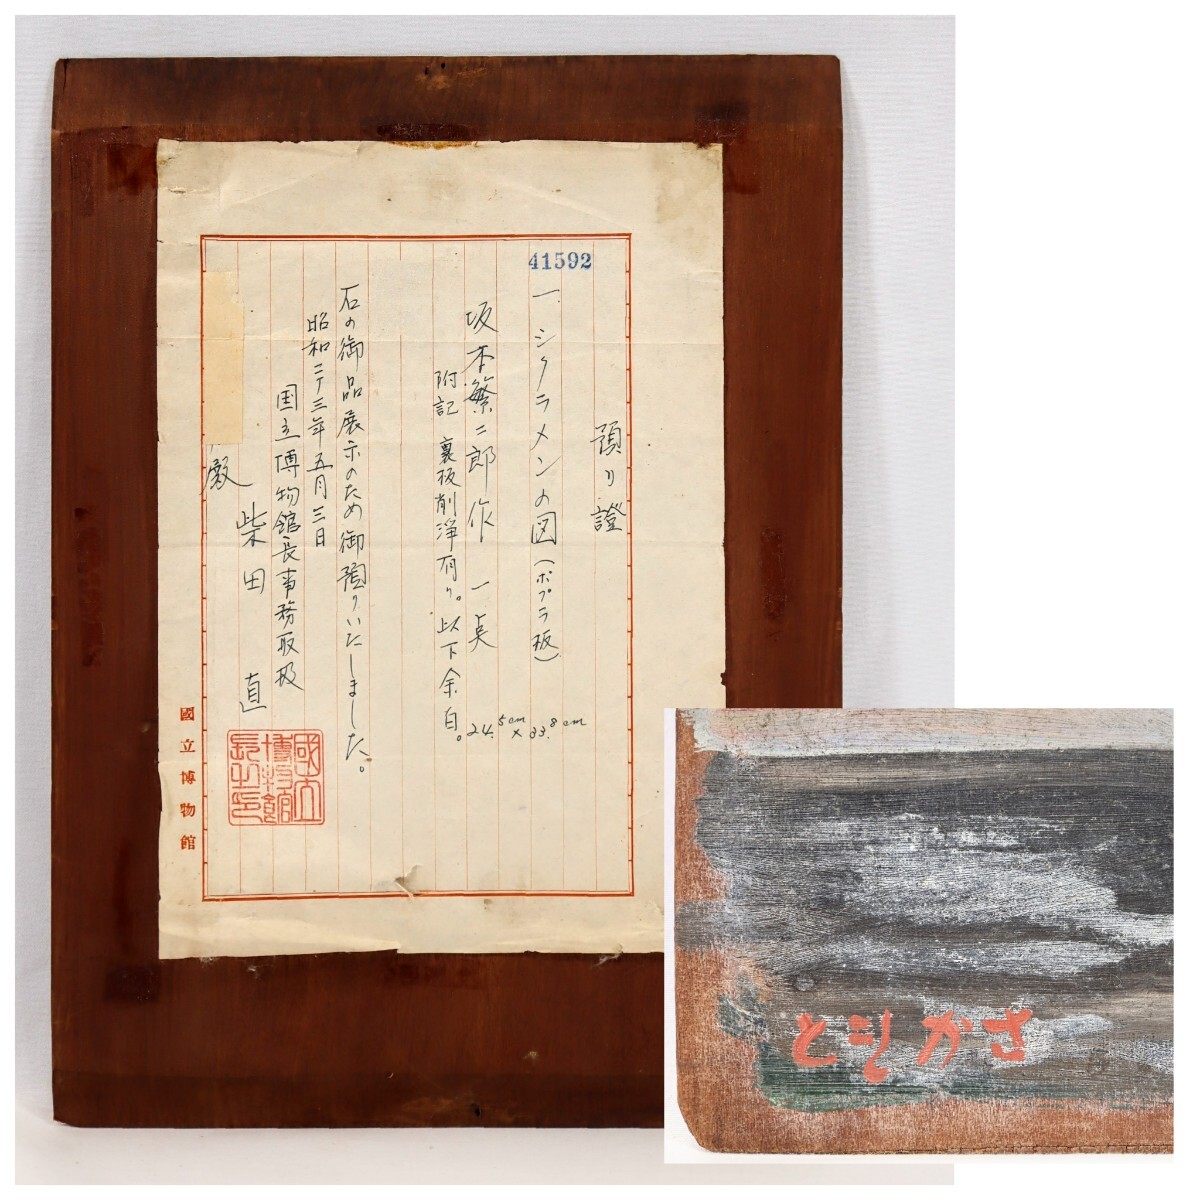 41592
預り證
一 シクラメンの図(ポプラ板)
坂本繁二郎作 一点
附記 裏板削浄有り。以下余白。
24.5cm × 33.8cm
右の御品展示のため御預りいたしました。
昭和二十三年五月三日
国立博物館長事務取扱
柴田 直
殿
國立博物館
國立博物館長之印
さかもと